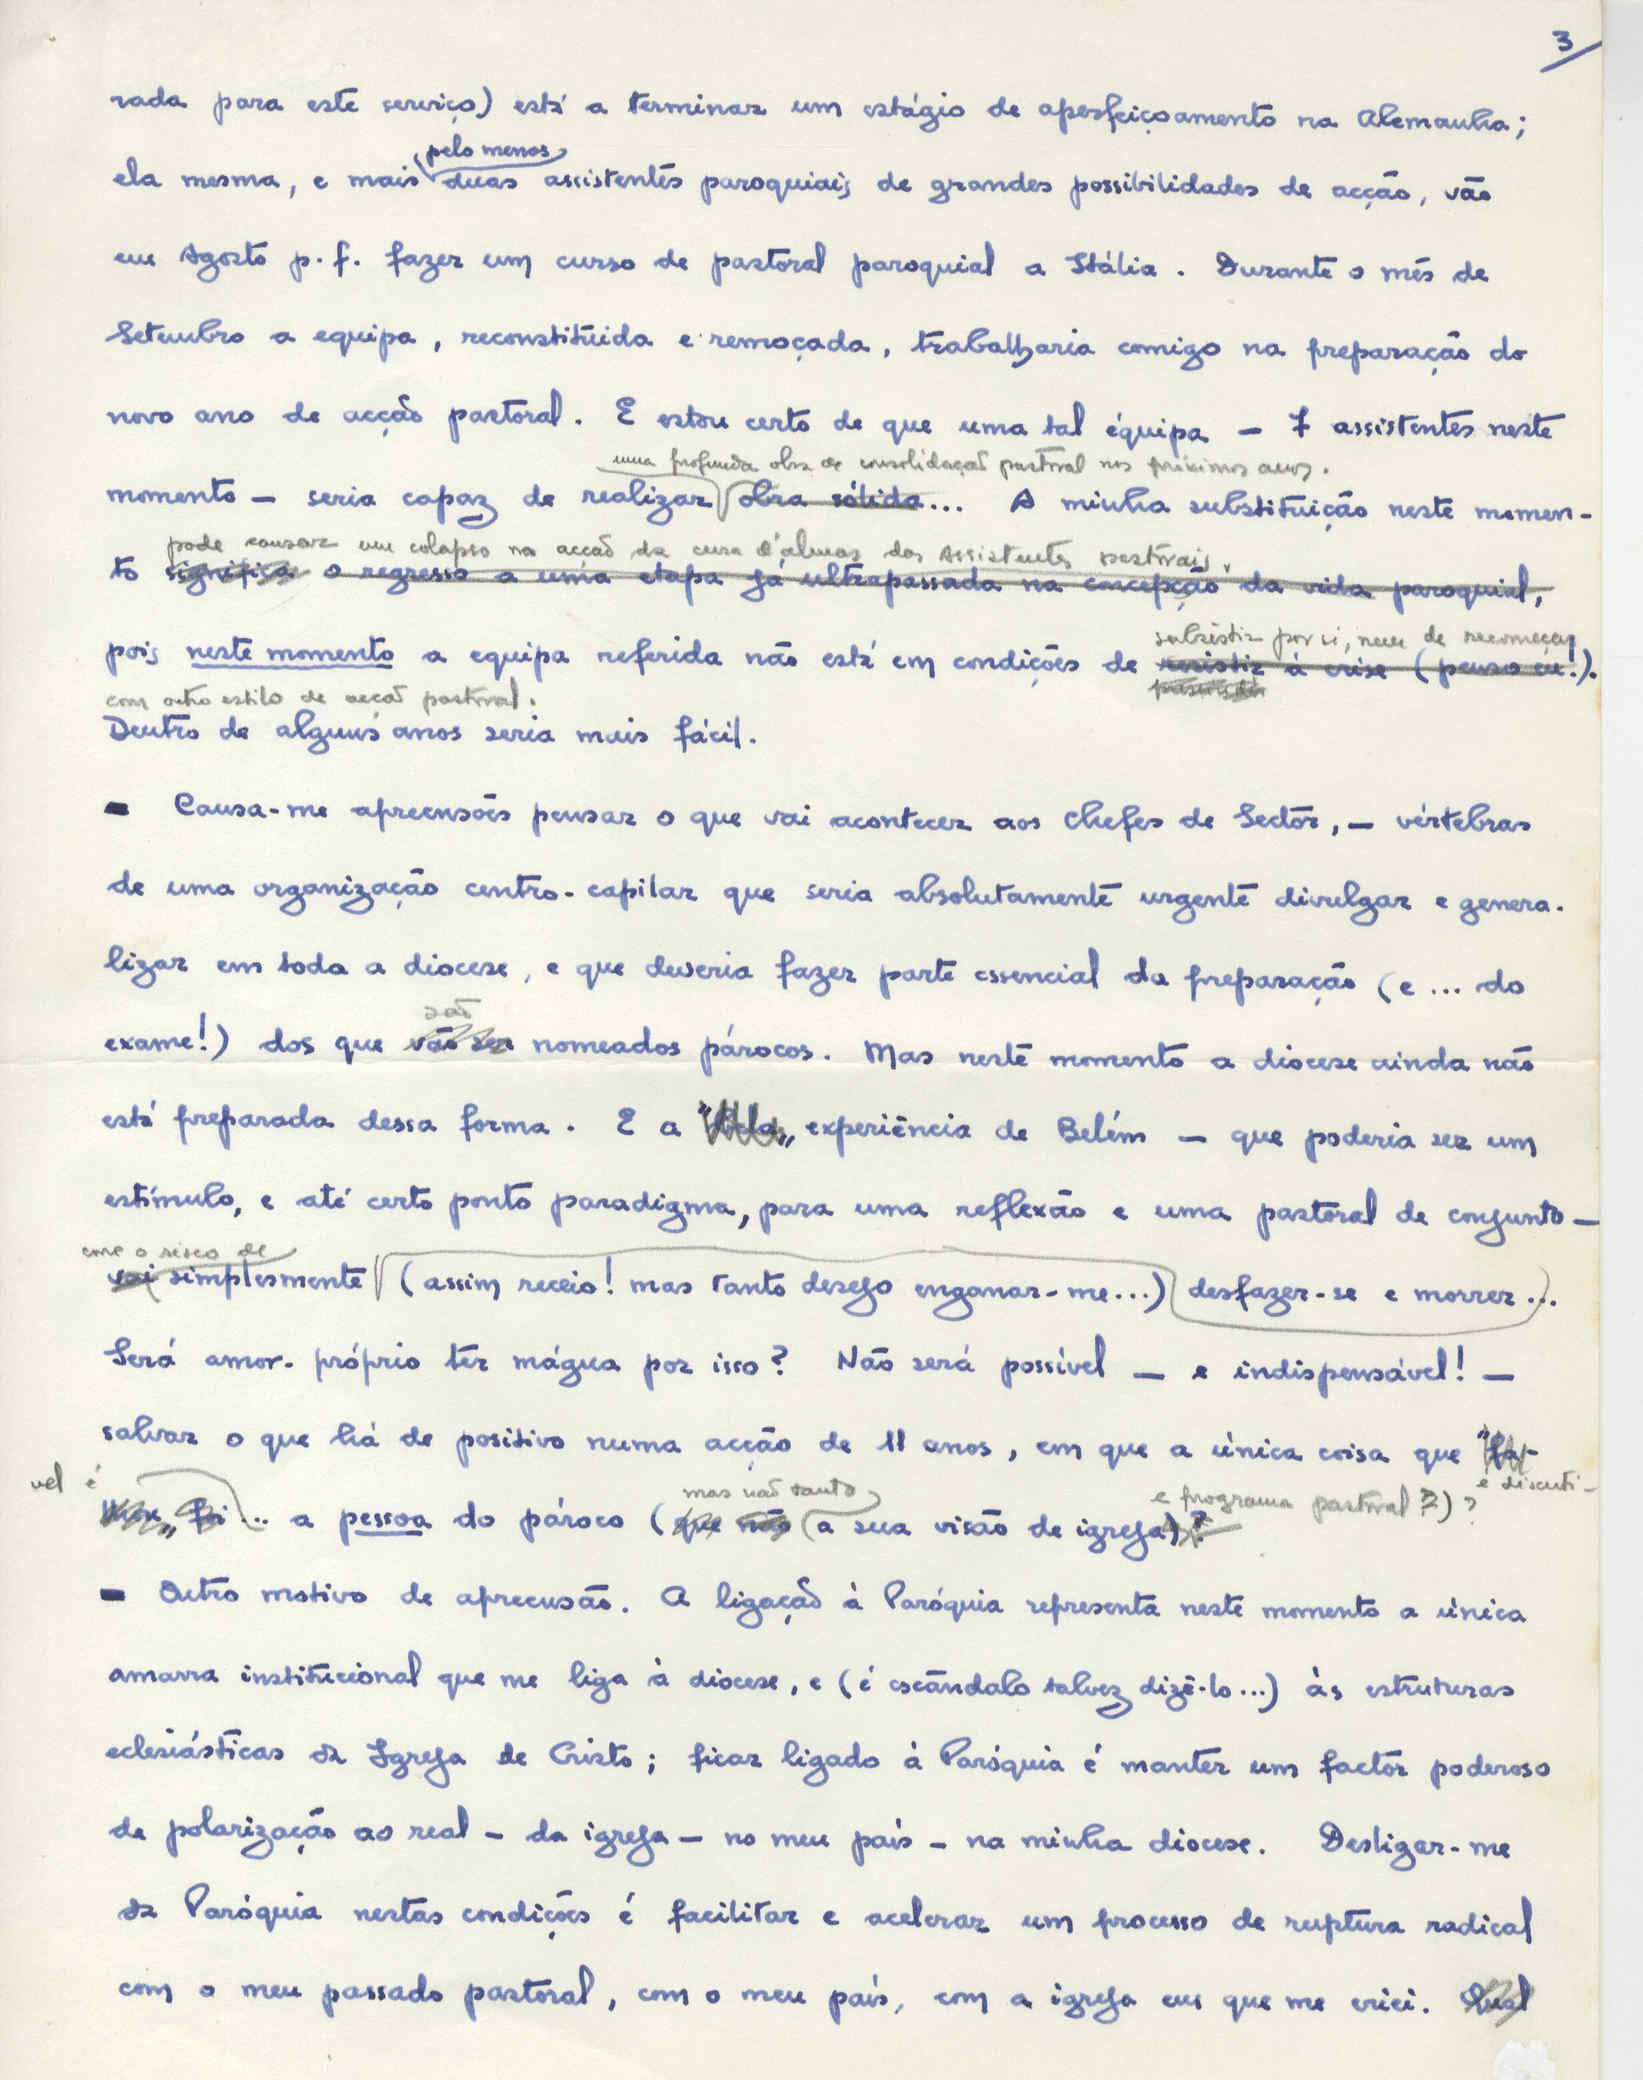 3
rada para este serviço) está a terminar um estágio de aperfeiçoamento na Alemanha;
pelo menos
ela mesma, e mais duas assistentes paroquiais de grandes possibilidades de acção, vão
em Agosto p.f. fazer um curso de pastoral paroquial a Itália. Durante o mês de
Setembro a equipa, reconstituída e remoçada, trabalharia comigo na preparação do
novo ano de acção pastoral. E estou certo de que uma tal équipa — 7 assistentes neste
uma profunda obra de consolidação pastoral nos próximos anos.
momento — seria capaz de realizar obra sólida... A minha substituição neste momen-
pode causar um colapso na acção da cura d'almas das Assistentes pastorais,
to significa o regresso a uma etapa já ultrapassada na concepção da vida paroquial,
subsistir por si, nem de recomeçar
pois neste momento a equipa referida não está em condições de resistir à crise (penso eu!).
com outro estilo de acção pastoral.
Dentro de alguns anos seria mais fácil.
- Causa-me apreensões pensar o que vai acontecer aos Chefes de Sector, — vértebras
de uma organização centro-capilar que seria absolutamente urgente divulgar e genera-
lizar em toda a diocese, e que deveria fazer parte essencial da preparação (e ... do
são
exame!) dos que vão ser nomeados párocos. Mas neste momento a diocese ainda não
está preparada dessa forma. E a "bela" experiência de Belém — que poderia ser um
estímulo, e até certo ponto paradigma, para uma reflexão e uma pastoral de conjunto —
corre o risco de
vai simplesmente (assim receio! mas tanto desejo enganar-me...) desfazer-se e morrer...
Será amor-próprio ter mágua por isso? Não será possível — e indispensável! —
salvar o que há de positivo numa acção de 11 anos, em que a única coisa que
é discuti-
vel é
mas não tanto
e programa pastoral?)?
foi... a pessoa do pároco (que não a sua visão de igreja)?
- Outro motivo de apreensão. A ligação à Paróquia representa neste momento a única
amarra institucional que me liga à diocese, e (é escândalo talvez dizê-lo...) às estruturas
eclesiásticas da Igreja de Cristo; ficar ligado à Paróquia é manter um factor poderoso
de polarização ao real — da igreja — no meu país — na minha diocese. Desligar-me
da Paróquia nestas condições é facilitar e acelerar um processo de ruptura radical
com o meu passado pastoral, com o meu país, com a igreja em que me criei. Qual